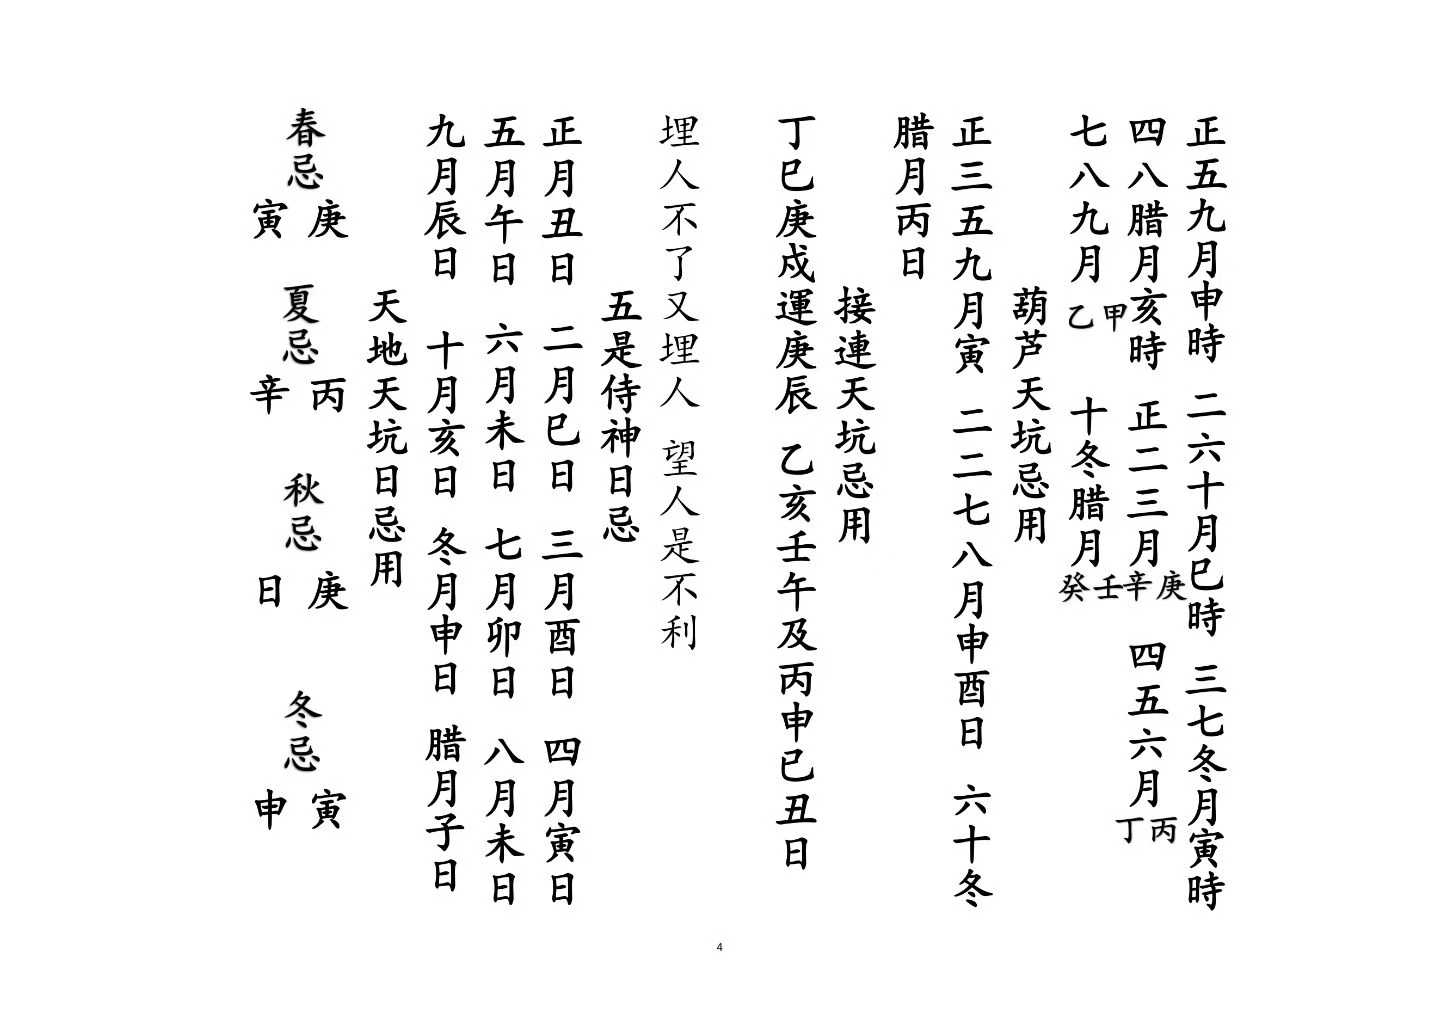 正五九月申時 二六十月巳時 三七冬月寅時
四八腊月亥時 正二三月庚辛 四五六月丙丁
七八九月甲乙 十冬腊月壬癸
葫芦天坑忌用
正三五九月寅 二二七八月申酉日 六十冬
腊月丙日
接連天坑忌用
丁巳庚戍運庚辰 乙亥壬午及丙申已丑日
埋人不了又埋人 望人是不利
五是侍神日忌
正月丑日 二月巳日 三月酉日 四月寅日
五月午日 六月未日 七月卯日 八月未日
九月辰日 十月亥日 冬月申日 腊月子日
天地天坑日忌用
春忌庚寅 夏忌丙辛 秋忌庚日 冬忌寅申
4